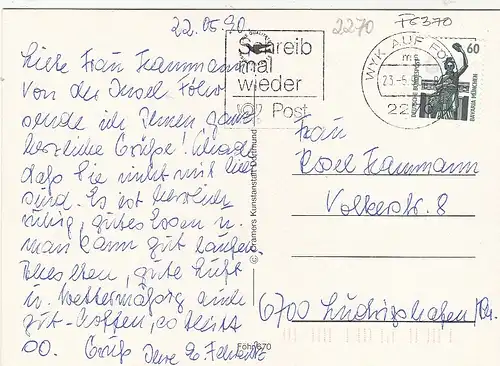 22.05.90
2270
F6370
Schreib
mal
wieder
Post
WYK AUF FÖHR
23.-5.
22
60
DEUTSCHE BUNDESPOST
BAVARIA MÜNCHEN
Liebe Frau Trammann
Von der Insel Föhr
sende ich Ihnen ganz
herzliche Grüße! Schade
daß Sie nicht mit hier
sind. Es ist herrlich
ruhig, gutes Essen u.
man kann gut laufen.
Alles eben, gute Luft
u. wettermäßig auch
gut - hoffen, es bleibt
so. Gruß Ihre
© Cramers Kunstanstalt Dortmund
Frau
Trammann
Volkerstr. 8
6700 Ludwigshafen/Rh.
Föhr 670